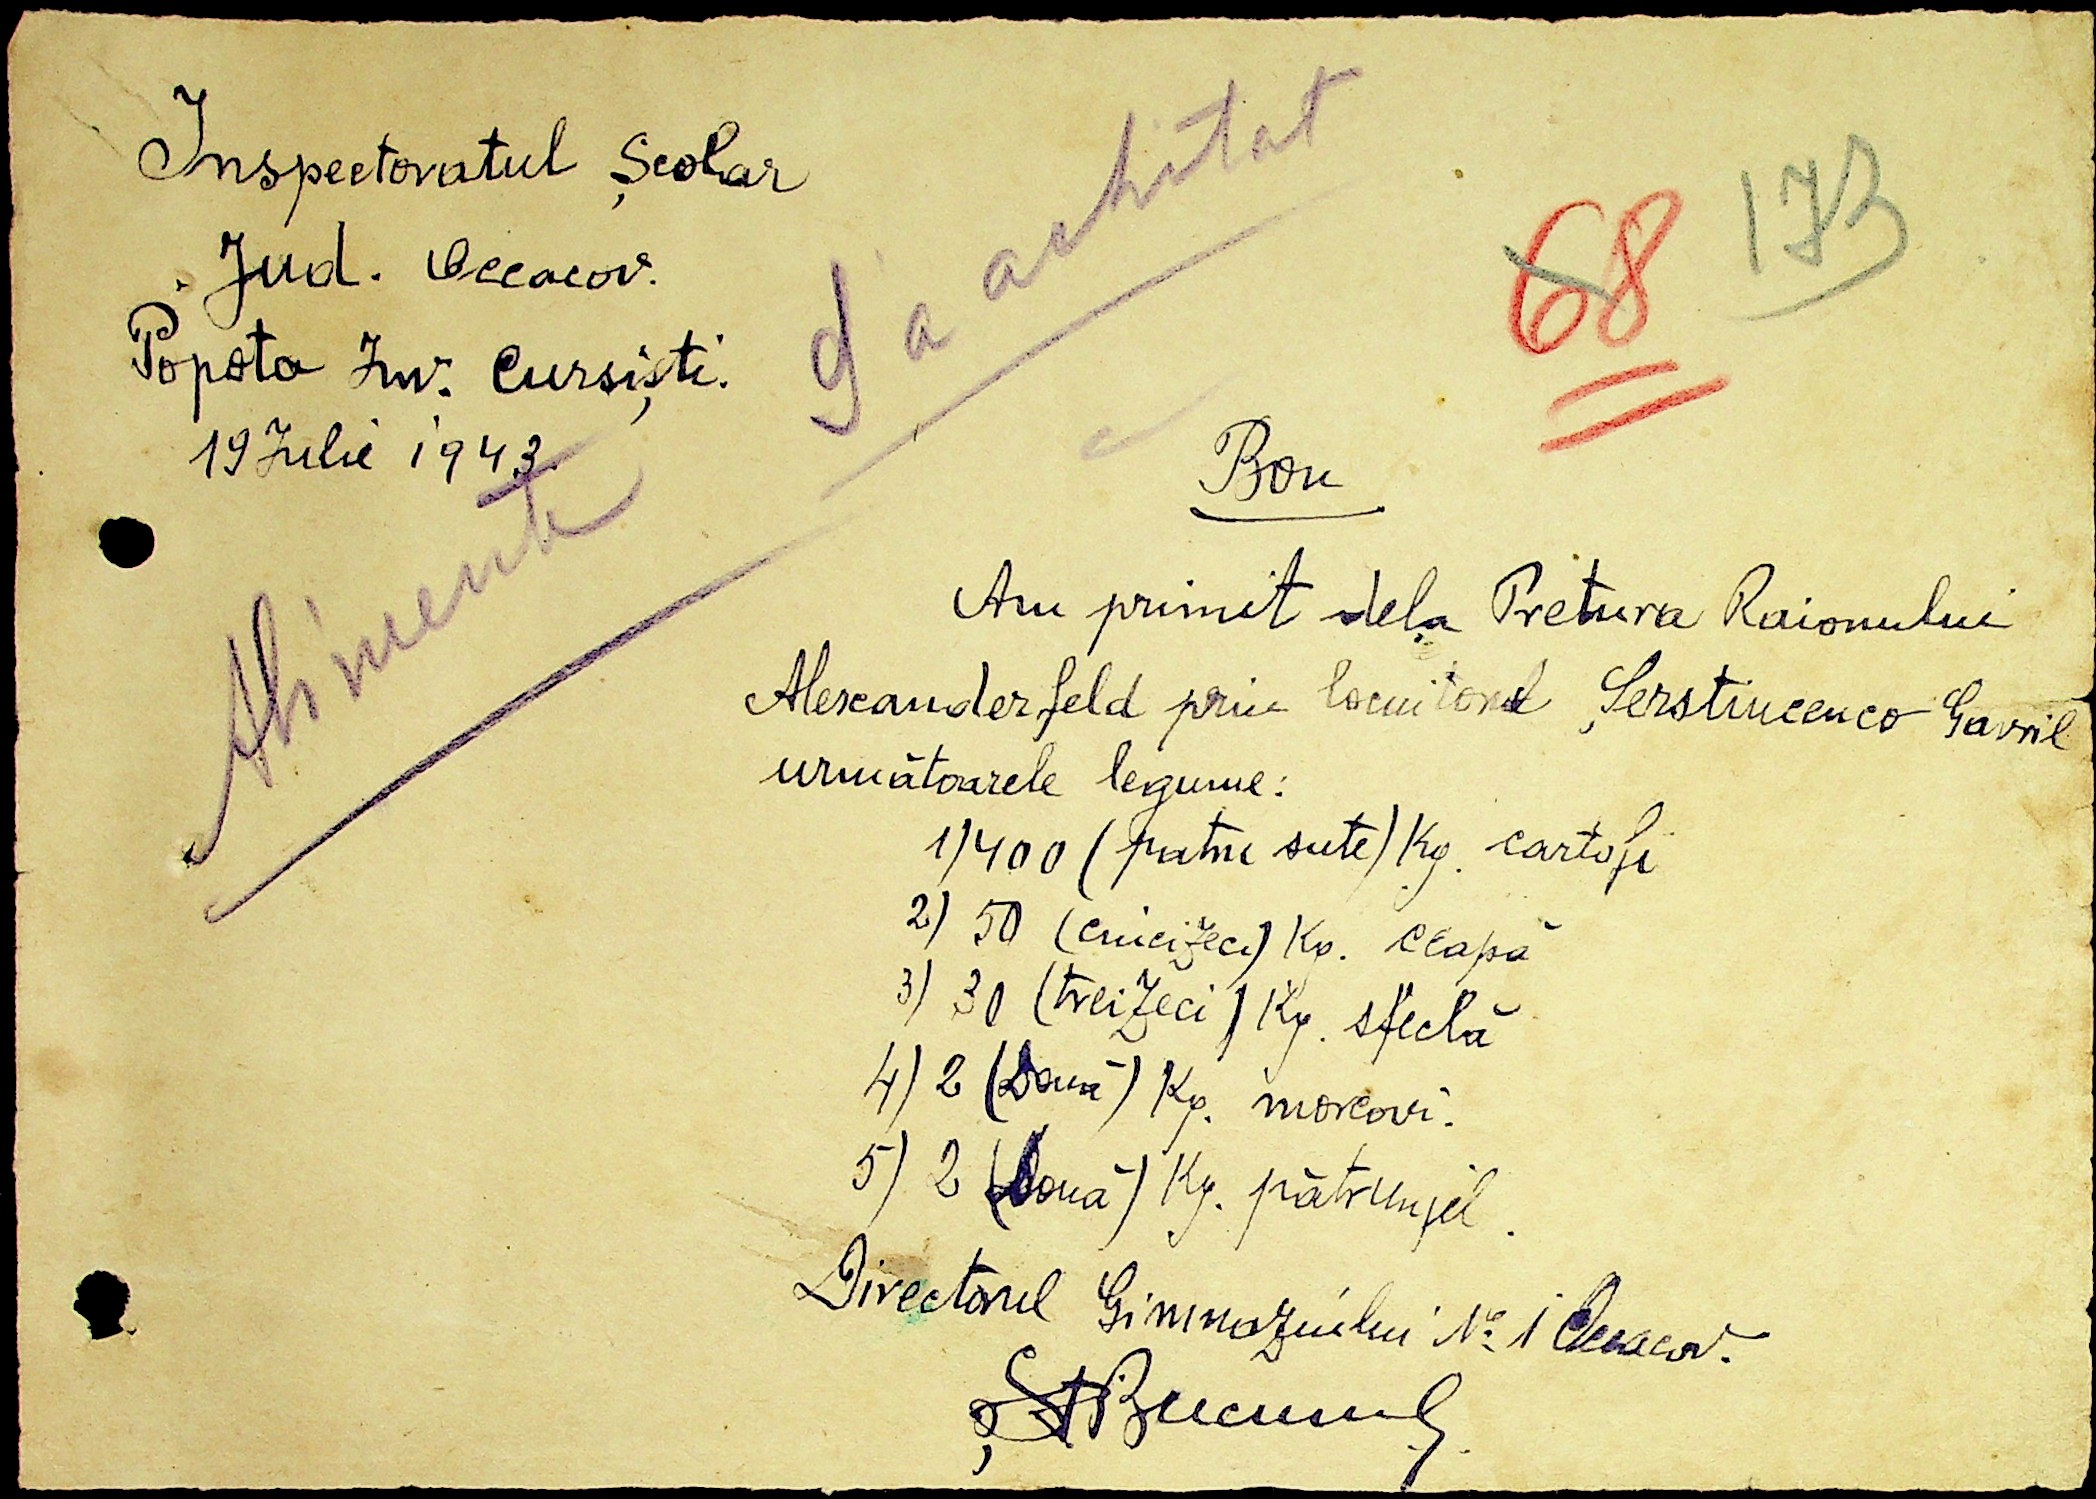 Inspectoratul Școlar
Jud. Oceacov.
Popota Înv. Cursiști.
19 Iulie 1943.
Alimente
S'a achitat
68
173
Bon
Am primit dela Pretura Raionului
Alexanderfeld prin locuitorul Șerstiucenco Gavril
următoarele legume:
1) 400 (patru sute) Kg. cartofi
2) 50 (cincizeci) Kg. ceapă
3) 30 (treizeci) Kg. sfeclă
4) 2 (Două) Kg. morcovi.
5) 2 (Două) Kg. pătrunjel.
Directorul Gimnaziului No. 1 Oceacov.